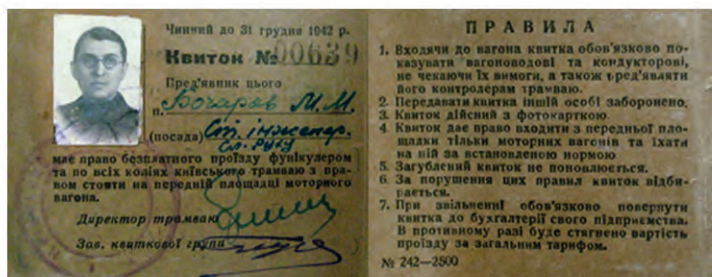 Чинний до 31 грудня 1942 р.
Квиток № 00639
Пред'явник цього
п. Бочаров М. М.
(посада) Ст. інженер.
Сл. руху
має право безплатного проїзду фунікулером
та по всіх коліях київського трамваю з пра-
вом стояти на передній площадці моторного
вагона.
Директор трамваю
Зав. квиткової групи
ПРАВИЛА
1. Входячи до вагона квитка обов'язково по-
казувати вагоноводові та кондукторові,
не чекаючи їх вимоги, а також пред'являти
його контролерам трамваю.
2. Передавати квитка іншій особі заборонено.
3. Квиток дійсний з фотокарткою.
4. Квиток дає право входити з передньої пло-
щадки тільки моторних вагонів та їхати
на ній за встановленою нормою
5. Загублений квиток не поповнюється.
6. За порушення цих правил квиток відби-
рається.
7. При звільненні обов'язково повернути
квитка до бухгалтерії свого підприємства.
В противному разі буде стягнено вартість
проїзду за загальним тарифом.
№ 242—2500